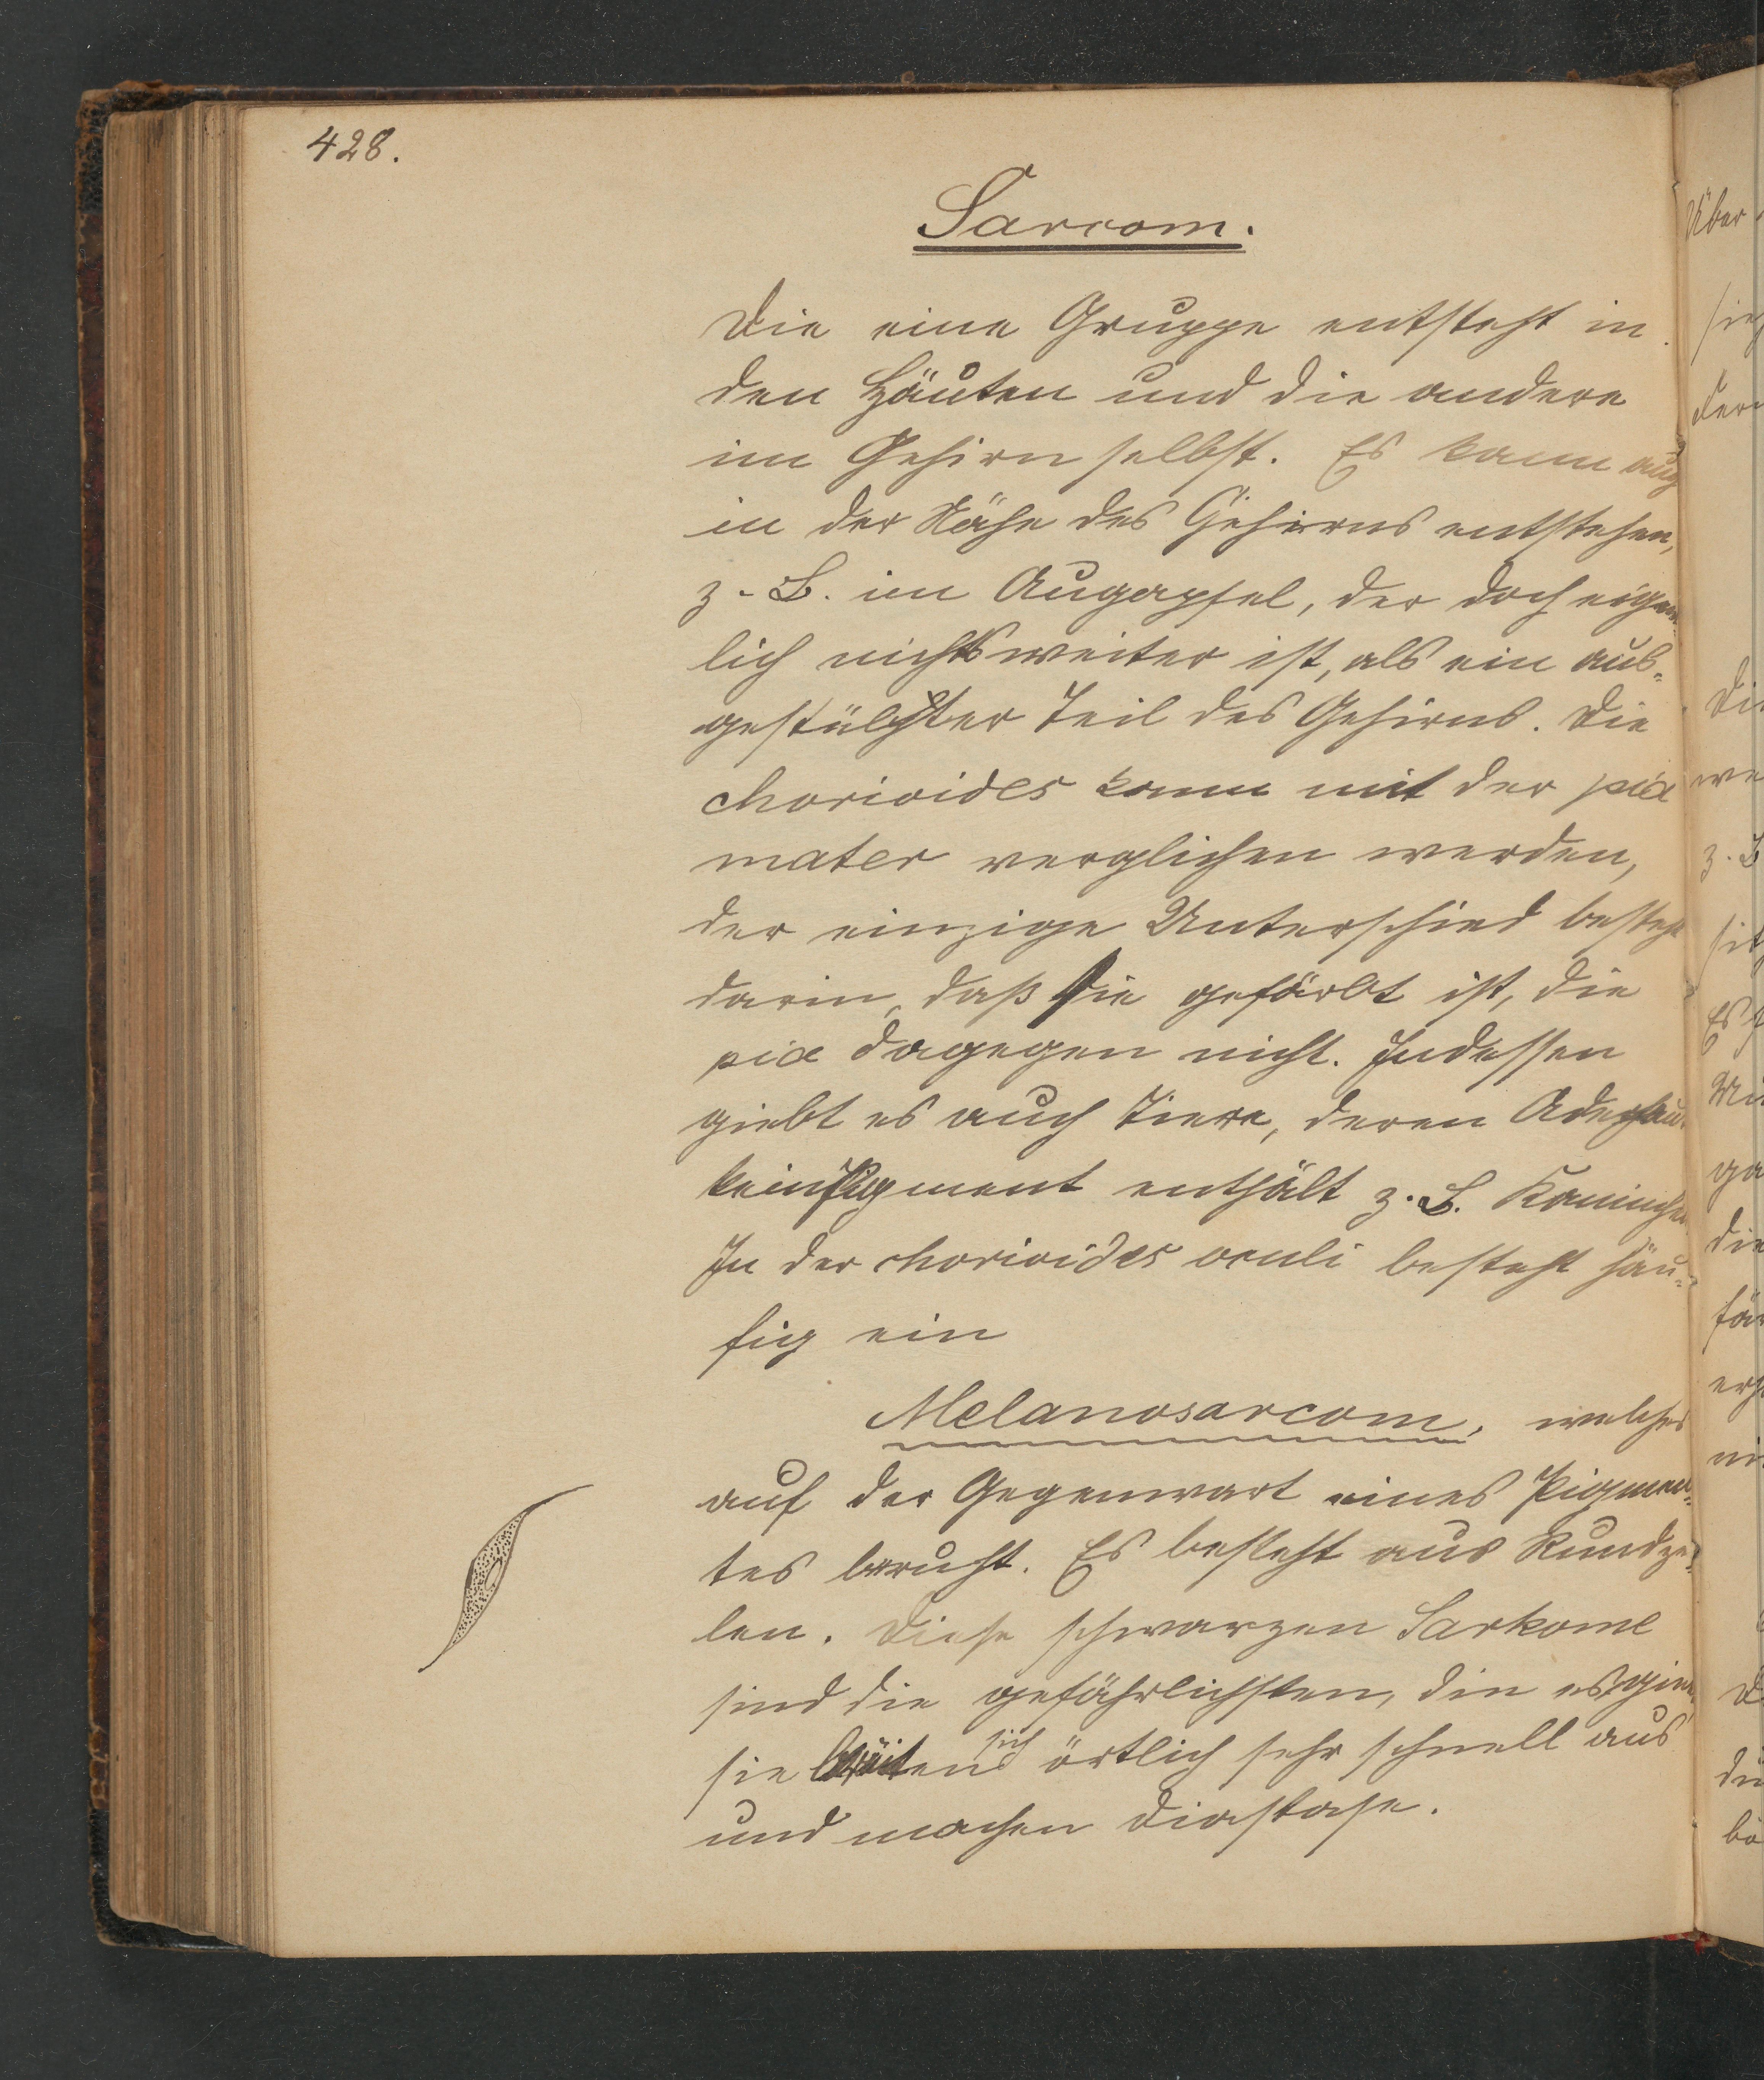 428.
Sarcom.
Die eine Gruppe entsteht in
den Häuten und die andere
im Gehirn selbst. Es kann auch
in der Nähe des Gehirns entstehen,
z. B. im Augapfel, der doch eigent¬
lich nichts weiter ist, als ein aus¬
gestülpter Teil des Gehirns. Die
chorioides kann mit der pia
mater verglichen werden,
der einzige Unterschied besteht
darin, daß sie gefärbt ist, die
pia dagegen nicht. Indessen
giebt es auch Tiere, deren Aderhaut
kein Pigment enthält z. B. Kaninchen
In der chorioides oculi besteht häu¬
fig ein
Melanosarcom, welches
auf der Gegenwart eines Pigmen¬
tes beruht. Es besteht aus Rundzel¬
len. Diese schwarzen Sarkome
sind die gefährlichsten, die es giebt,
sie breiten sich örtlich sehr schnell aus
und machen Diastase.
Über